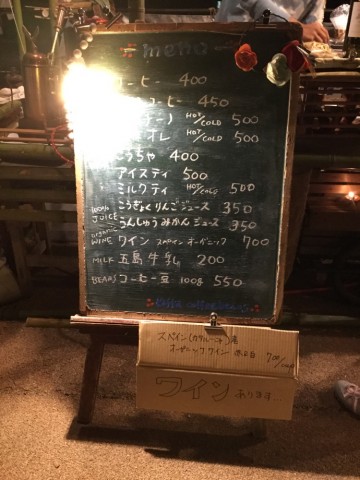 menu
コーヒー 400
コーヒー 450
HOT/COLD 500
オレ HOT/COLD 500
こうちゃ 400
アイスティ 500
ミルクティ HOT/COLD 500
100% JUICE こうぎょくりんごジュース 350
うんしゅうみかんジュース 350
organic WINE ワイン スペインオーガニック 700
MILK 五島牛乳 200
BEANS コーヒー豆 100g 550
スペイン
オーガニックワイン 赤・白 700/
ワイン あります